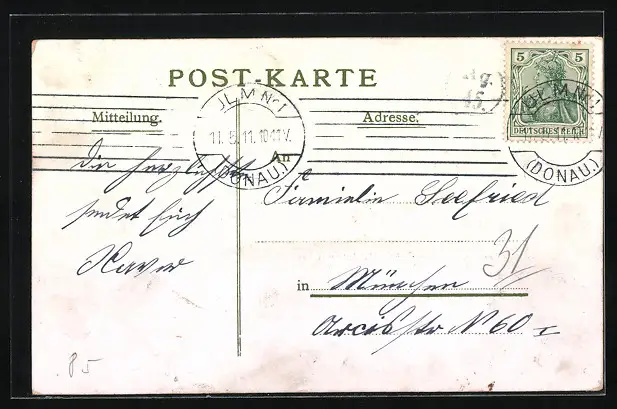 POST-KARTE
Mitteilung.
Adresse.
ULM No 1
11.5.11.10-11V.
(DONAU.)
5 5
DEUTSCHES REICH
ULM No 1
(DONAU.)
Die herzlichste
sendet Euch
Xaver
An
Familie Seefried
31
in München
Arcisstr No 60 I
85